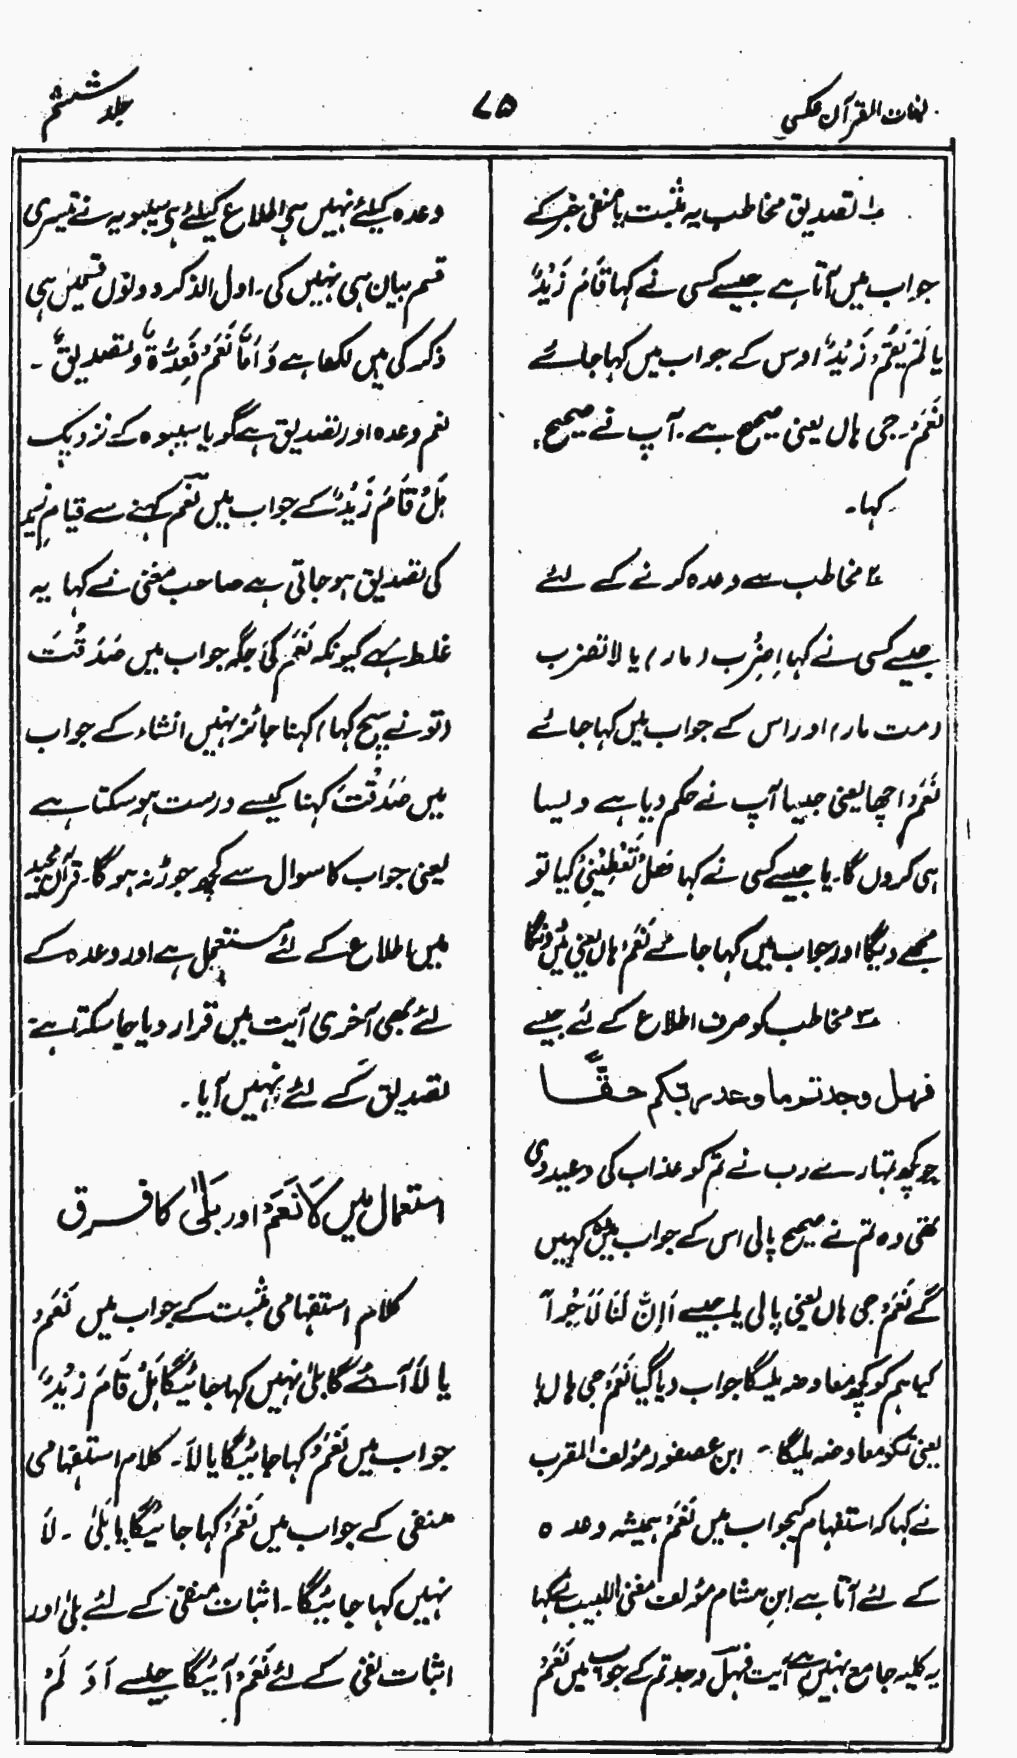 لغات القرآن عکسی
۷۵
جلد ششم
۱؎ تصدیق مخاطب یہ مثبت یا منفی خبر کے
جواب میں آتا ہے جیسے کسی نے کہا قَامَ زَیْدٌ
یا لَمْ یَقُمْ زَیْدٌ اوس کے جواب میں کہا جائے
نَعَمْ۔ جی ہاں یعنی صحیح ہے۔ آپ نے صحیح
کہا۔
۲؎ مخاطب سے وعدہ کرنے کے لئے
جیسے کسی نے کہا اِضْرِب (مار) یا لا تضرب
(مت مار) اور اس کے جواب میں کہا جائے
نَعَمْ اچھا یعنی جیسا آپ نے حکم دیا ہے ویسا
ہی کروں گا۔ یا جیسے کسی نے کہا ھَلْ تُعْطِیْنِیْ کیا تو
مجھے دیگا اور جواب میں کہا جائے نَعَمْ ہاں یعنی میں دونگا
۳؎ مخاطب کو صرف اطلاع کے لئے جیسے
فهل وجدتم ما وعد ربکم حقًّا
جو کچھ تمہارے رب نے تم کو عذاب کی وعید دی
تھی وہ تم نے صحیح پالی اس کے جواب میں کہیں
گے نَعَمْ جی ہاں یعنی پالی یا جیسے اَاِنَّ لَنَا لَاَجْراً
کیا ہم کو کچھ معاوضہ ملیگا جواب دیا گیا نَعَمْ جی ہاں!
یعنی تمکو معاوضہ ملیگا۔ ابن عصفور مؤلف المقرب
نے کہا کہ استفہام کیجواب میں نَعَمْ ہمیشہ وعدہ
کے لئے آتا ہے ابنِ ہشام مؤلف مغنی اللبیب نے کہا
یہ کلیہ جامع نہیں ہے آیت فہل وجدتم کے جواب میں نَعَمْ
وعدہ کیلئے نہیں ہے اطلاع کیلئے ہے سیبویہ نے تیسری
قسم بیان ہی نہیں کی۔ اول الذکر دونوں قسمیں ہی
ذکر کی ہیں لکھا ہے وَ اَمَّا نَعَمْ فَعِدَۃٌ وتصدیقٌ۔
نعم وعدہ اور تصدیق ہے گویا سیبویہ کے نزدیک
ہَلْ قَامَ زَیْدٌ کے جواب میں نعم کہنے سے قیامِ زید
کی تصدیق ہو جاتی ہے صاحب مغنی نے کہا یہ
غلط ہے کیونکہ نَعَمْ کی جگہ جواب میں صَدَقْتَ
(تو نے سچ کہا) کہنا جائز نہیں انشاء کے جواب
میں صَدَقْتَ کہنا کیسے درست ہو سکتا ہے
یعنی جواب کا سوال سے کچھ جوڑ نہ ہوگا۔ قرآن مجید
میں اطلاع کے لئے مستعمل ہے اور وعدہ کے
لئے بھی آخری آیت میں قرار دیا جا سکتا ہے
تصدیق کے لئے نہیں آیا۔
استعمال میں کَا نَعَمْ اور بَلٰی کا فرق
کلام استفہامی مثبت کے جواب میں نَعَمْ
یا لَا آئے گا بلٰی نہیں کہا جائیگا ہَلْ قَامَ زَیْدٌ
جواب میں نَعَمْ کہا جائیگا یا لَا۔ کلام استفہامی
منفی کے جواب میں نَعَمْ کہا جائیگا یا بَلٰی۔ لَا
نہیں کہا جائیگا۔ اثبات منفی کے لئے بلٰی اور
اثبات نفی کے لئے نَعَمْ آئیگا جیسے اَوَ لَمْ